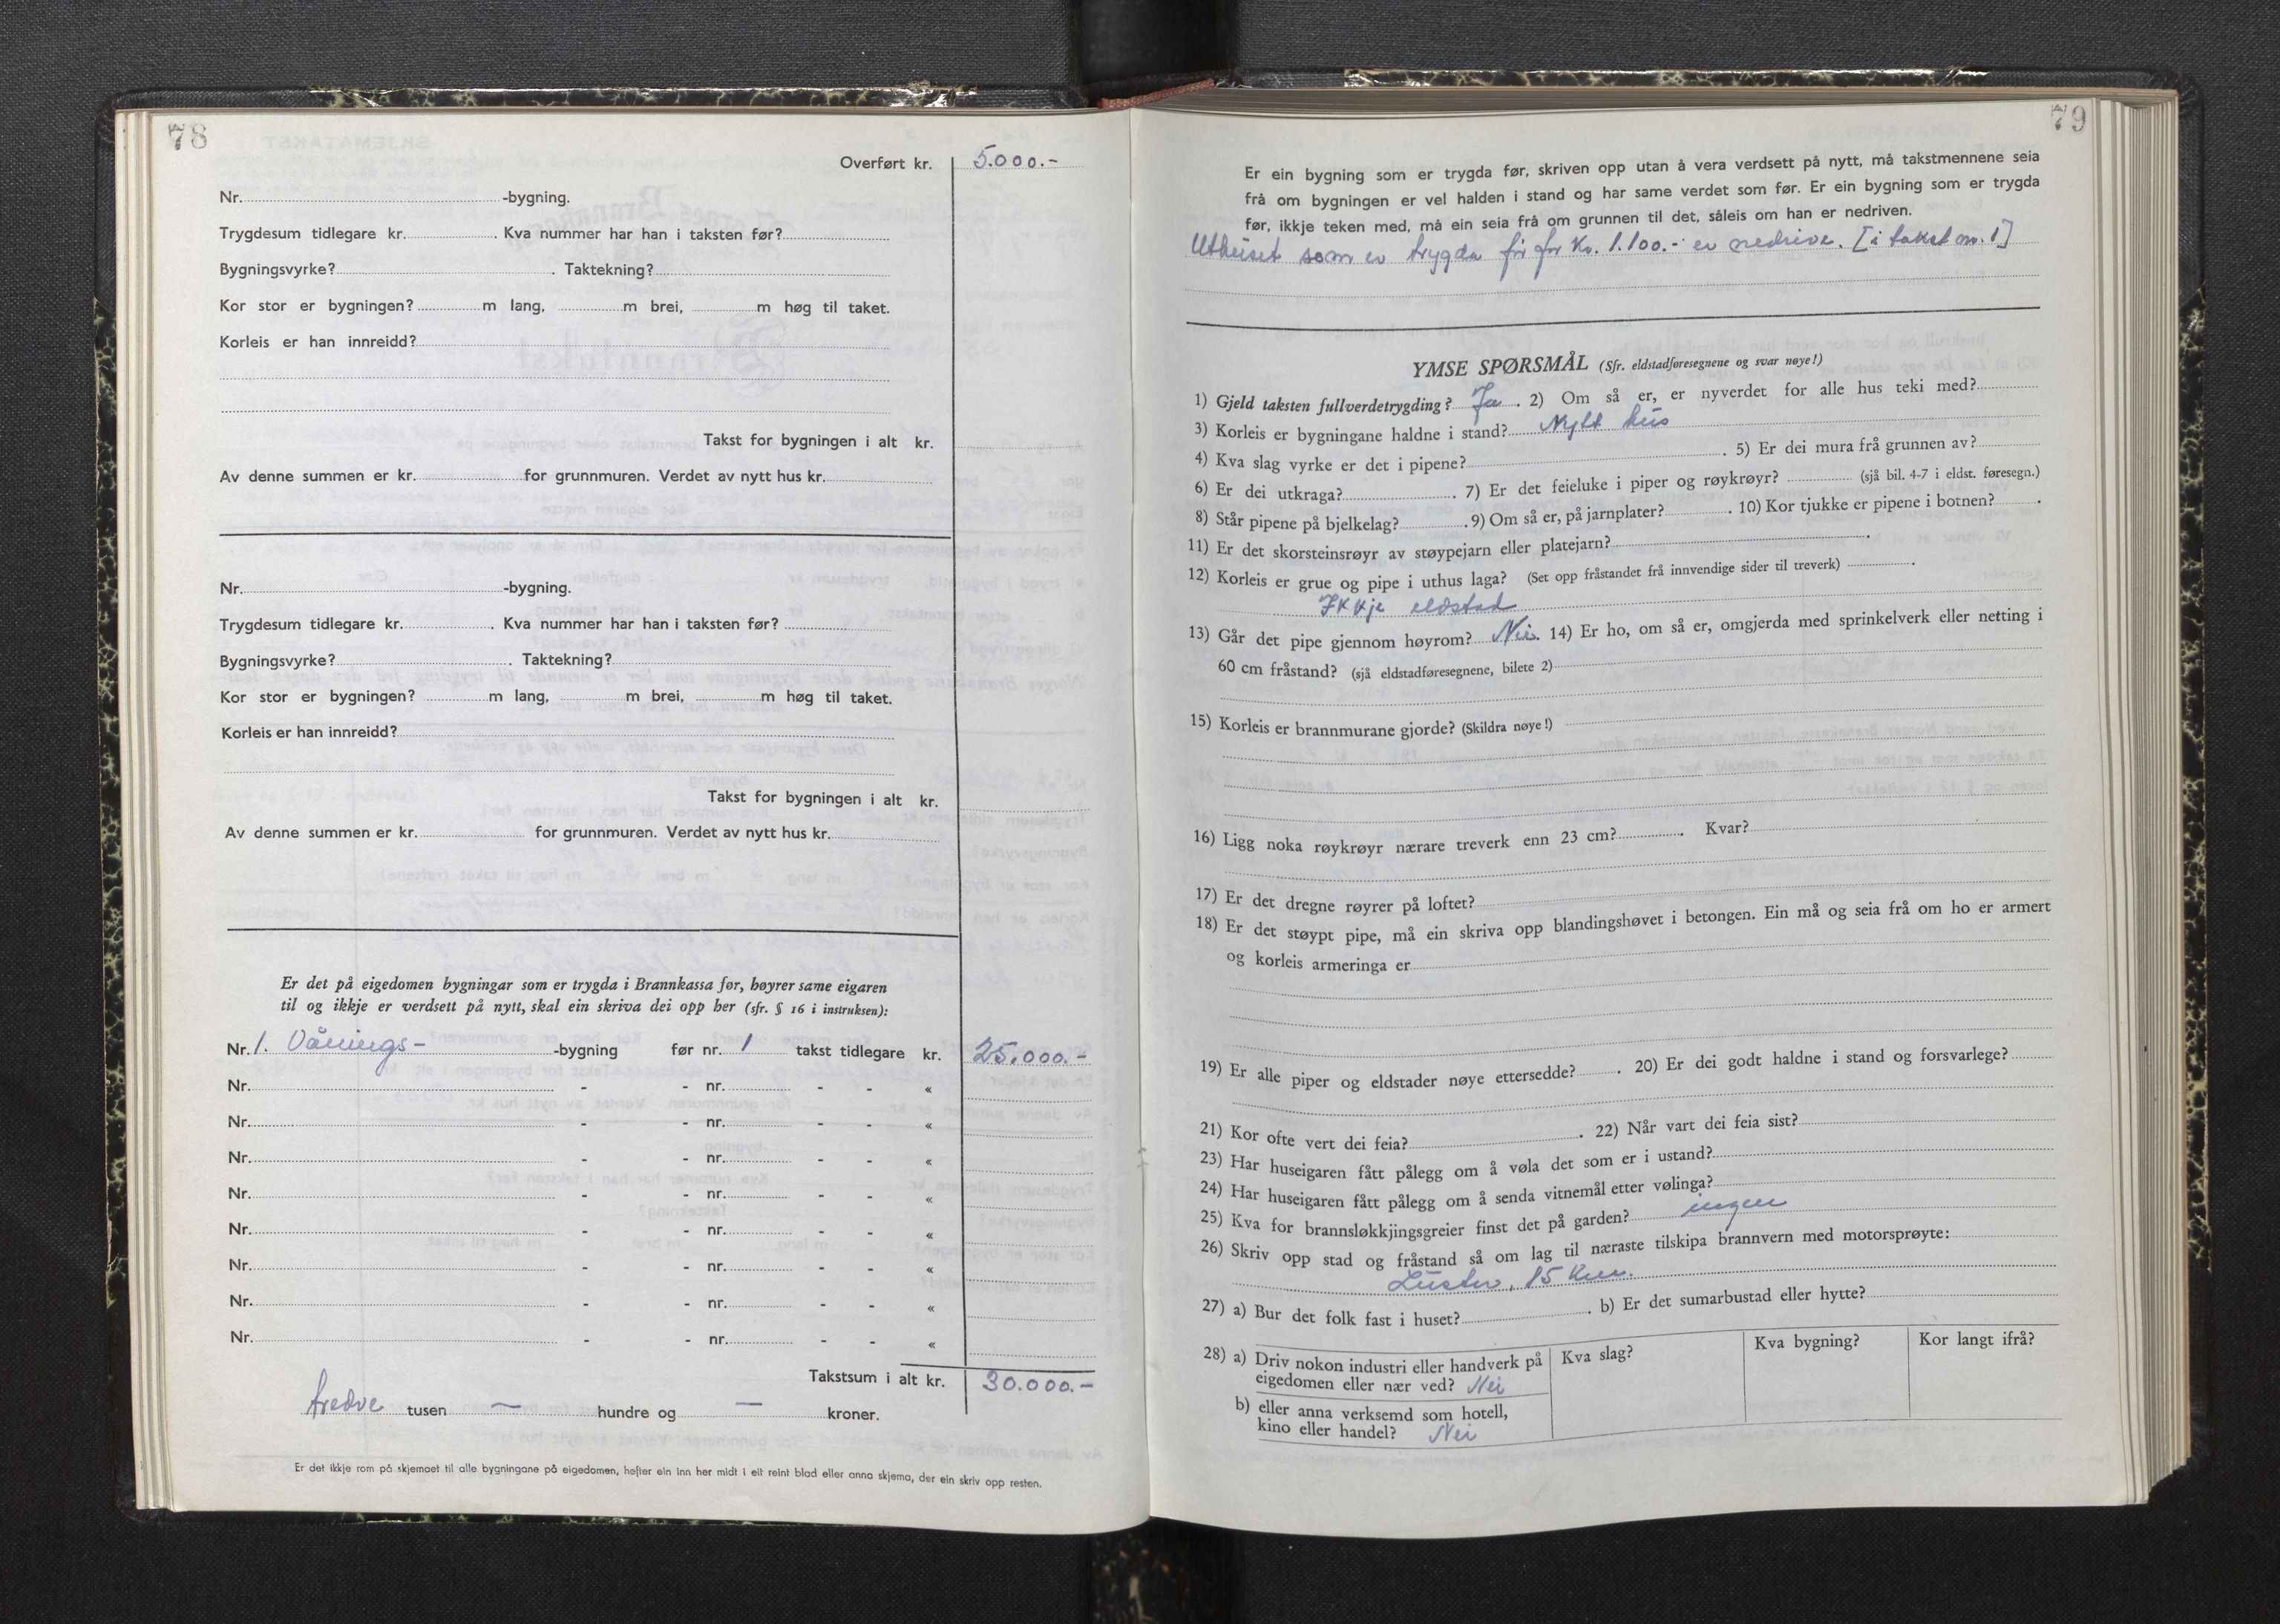 78
Overført kr. 5.000.-
Nr. -bygning.
Trygdesum tidlegare kr. . Kva nummer har han i taksten før?
Bygningsvyrke? . Taktekning?
Kor stor er bygningen? m lang, m brei, m høg til taket.
Korleis er han innreidd?
Takst for bygningen i alt kr.
Av denne summen er kr. for grunnmuren. Verdet av nytt hus kr.
Nr. -bygning.
Trygdesum tidlegare kr. . Kva nummer har han i taksten før?
Bygningsvyrke? . Taktekning?
Kor stor er bygningen? m lang, m brei, m høg til taket.
Korleis er han innreidd?
Takst for bygningen i alt kr.
Av denne summen er kr. for grunnmuren. Verdet av nytt hus kr.
Er det på eigedomen bygningar som er trygda i Brannkassa før, høyrer same eigaren
til og ikkje er verdsett på nytt, skal ein skriva dei opp her (sfr. § 16 i instruksen):
Nr. 1. Vånings- -bygning før nr. 1 takst tidlegare kr. 25.000.-
Nr. - - nr. - - «
Nr. - - nr. - - «
Nr. - - nr. - - «
Nr. - - nr. - - «
Nr. - - nr. - - «
Nr. - - nr. - - «
Nr. - - nr. - - «
Nr. - - nr. - - «
Takstsum i alt kr. 30.000.-
tredve tusen — hundre og — kroner.
Er det ikkje rom på skjemaet til alle bygningane på eigedomen, hefter ein inn her midt i eit reint blad eller anna skjema, der ein skriv opp resten.
79
Er ein bygning som er trygda før, skriven opp utan å vera verdsett på nytt, må takstmennene seia
frå om bygningen er vel halden i stand og har same verdet som før. Er ein bygning som er trygda
før, ikkje teken med, må ein seia frå om grunnen til det, såleis om han er nedriven.
Uthuset som er trygda før for Kr. 1.100.- er nedrive. [i takst nr. 1]
YMSE SPØRSMÅL (Sfr. eldstadføresegnene og svar nøye!)
1) Gjeld taksten fullverdetrygding? Ja . 2) Om så er, er nyverdet for alle hus teki med?
3) Korleis er bygningane haldne i stand? Nytt hus
4) Kva slag vyrke er det i pipene? . 5) Er dei mura frå grunnen av?
6) Er dei utkraga? . 7) Er det feieluke i piper og røykrøyr? (sjå bil. 4-7 i eldst. føresegn.)
8) Står pipene på bjelkelag? . 9) Om så er, på jarnplater? . 10) Kor tjukke er pipene i botnen? .
11) Er det skorsteinsrøyr av støypejarn eller platejarn? .
12) Korleis er grue og pipe i uthus laga? (Set opp fråstandet frå innvendige sider til treverk) .
Ikkje eldstad
13) Går det pipe gjennom høyrom? Nei. 14) Er ho, om så er, omgjerda med sprinkelverk eller netting i
60 cm fråstand? (sjå eldstadføresegnene, bilete 2)
15) Korleis er brannmurane gjorde? (Skildra nøye!)
16) Ligg noka røykrøyr nærare treverk enn 23 cm? . Kvar?
17) Er det dregne røyrer på loftet?
18) Er det støypt pipe, må ein skriva opp blandingshøvet i betongen. Ein må og seia frå om ho er armert
og korleis armeringa er
19) Er alle piper og eldstader nøye ettersedde? . 20) Er dei godt haldne i stand og forsvarlege?
21) Kor ofte vert dei feia? . 22) Når vart dei feia sist?
23) Har huseigaren fått pålegg om å vøla det som er i ustand?
24) Har huseigaren fått pålegg om å senda vitnemål etter vølinga?
25) Kva for brannsløkkjingsgreier finst det på garden? ingen
26) Skriv opp stad og fråstand så om lag til næraste tilskipa brannvern med motorsprøyte:
Luster, 15 km.
27) a) Bur det folk fast i huset? . b) Er det sumarbustad eller hytte?
28) a) Driv nokon industri eller handverk på Kva slag? Kva bygning? Kor langt ifrå?
eigedomen eller nær ved? Nei
b) eller anna verksemd som hotell,
kino eller handel? Nei